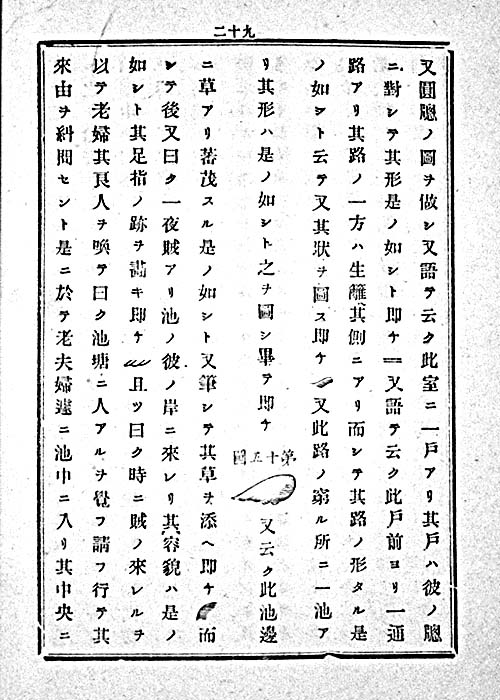 二十九
又圓牕ノ圖ヲ倣シ又語テ云ク此室ニ一戸アリ其戸ハ彼ノ牕
ニ對シテ其形是ノ如シト即ケ一又語テ云ク此戸前ヨリ一通
路アリ其路ノ一方ハ生籬其側ニアリ而シテ其路ノ形タル是
ノ如シト云テ又其狀ヲ圖ス即ケ又此路ノ窮ル所ニ一池ア
リ其形ハ是ノ如シト之ヲ圖シ畢テ即ケ
第十五圖
又云ク此池邊
ニ草アリ蕃茂スル是ノ如シト又筆シテ其草ヲ添ヘ即ケ而
シテ後又曰ク一夜賊アリ池ノ彼ノ岸ニ來レリ其容貌ハ是ノ
如シト其足指ノ跡ヲ畵キ即ケ且ツ曰ク時ニ賊ノ來レルヲ
以テ老婦其良人ヲ喚テ曰ク池塘ニ人アルヲ覺フ請フ行テ其
來由ヲ糾問セント是ニ於テ老夫婦遽ニ池中ニ入リ其中央ニ